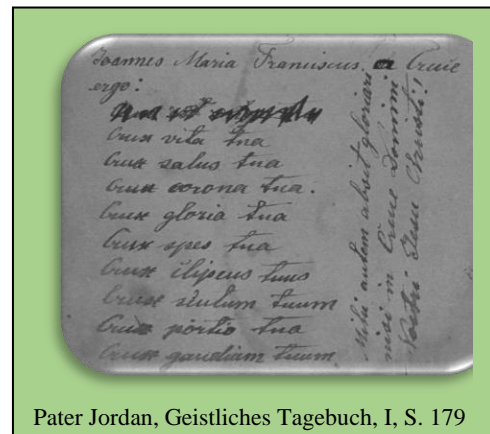 Joannes Maria Franciscus a Cruce
ergo:
Crux vita tua
Crux salus tua
Crux corona tua.
Crux gloria tua
Crux spes tua
Crux clipeus tuus
Crux scutum tuum
Crux portio tua
Crux gaudium tuum.
Mihi autem absit gloriari
nisi in Cruce Domini
Nostri Jesu Christi!
Pater Jordan, Geistliches Tagebuch, I, S. 179